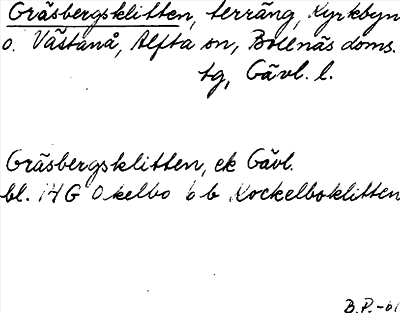 Gräsbergsklitten, terräng, Kyrkbyn
o. Västanå, Alfta sn, Bollnäs doms.
tg, Gävl. l.
Gräsbergsklitten, ek Gävl.
bl. 14G Ockelbo 6b Kockelboklitten
B.P.-61